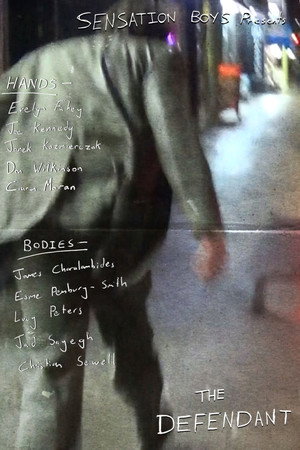 SENSATION BOYS Presents
HANDS -
Evelyn Fahey
Joe Kennedy
Jarek Kazmierczak
Dan Wilkinson
Ciaran Moran
BODIES -
James Charalambides
Esme Pemburg-Smith
Lucy Peters
Jad Sayegh
Christian Sewell
THE
DEFENDANT